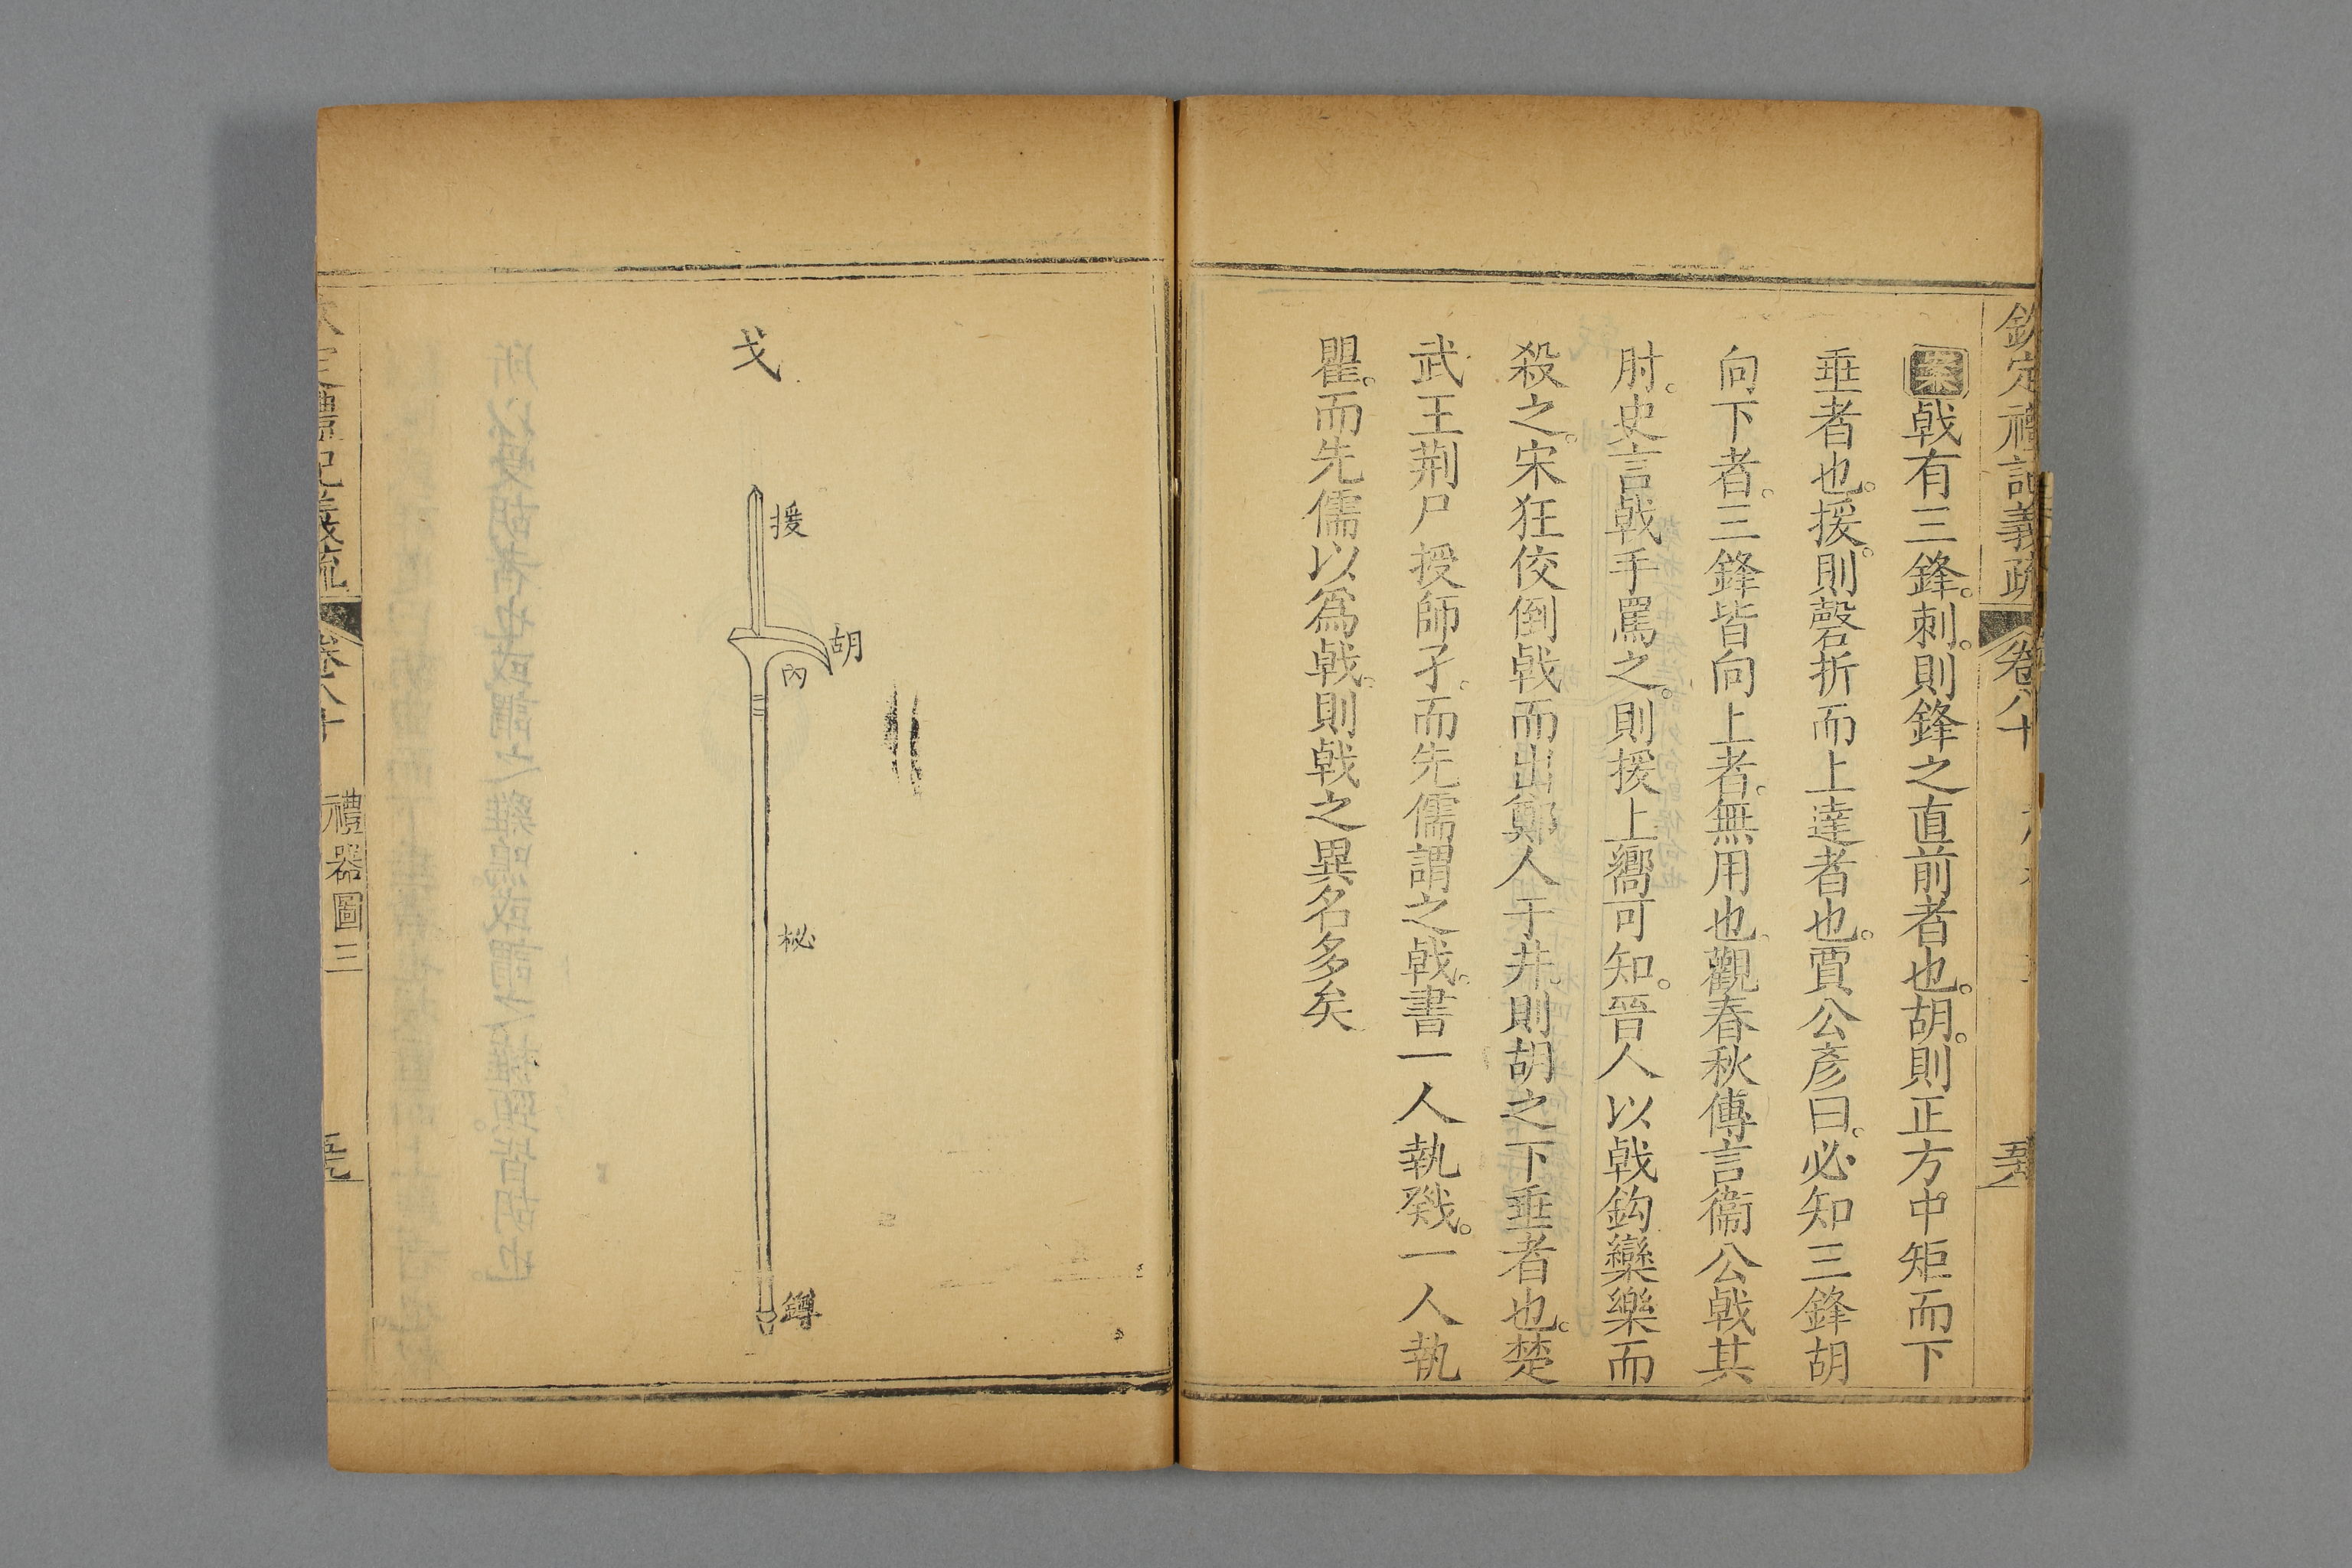 欽定禮記義疏 卷八十
案戟有三鋒。刺。則鋒之直前者也。胡。則正方中矩而下
垂者也。援。則磬折而上達者也。賈公彥曰。必知三鋒胡
向下者。三鋒皆向上者。無用也。觀春秋傳言衞公戟其
肘。史言戟手罵之。則援上嚮可知。晉人以戟鈎欒樂而
殺之。宋狂佼倒戟而出鄭人于井。則胡之下垂者也。楚
武王荆尸授師孑。而先儒謂之戟。書一人執戣。一人執
瞿。而先儒以爲戟。則戟之異名多矣
戈
援
胡
內
柲
鐏
定禮記義疏 卷八十 禮器圖三